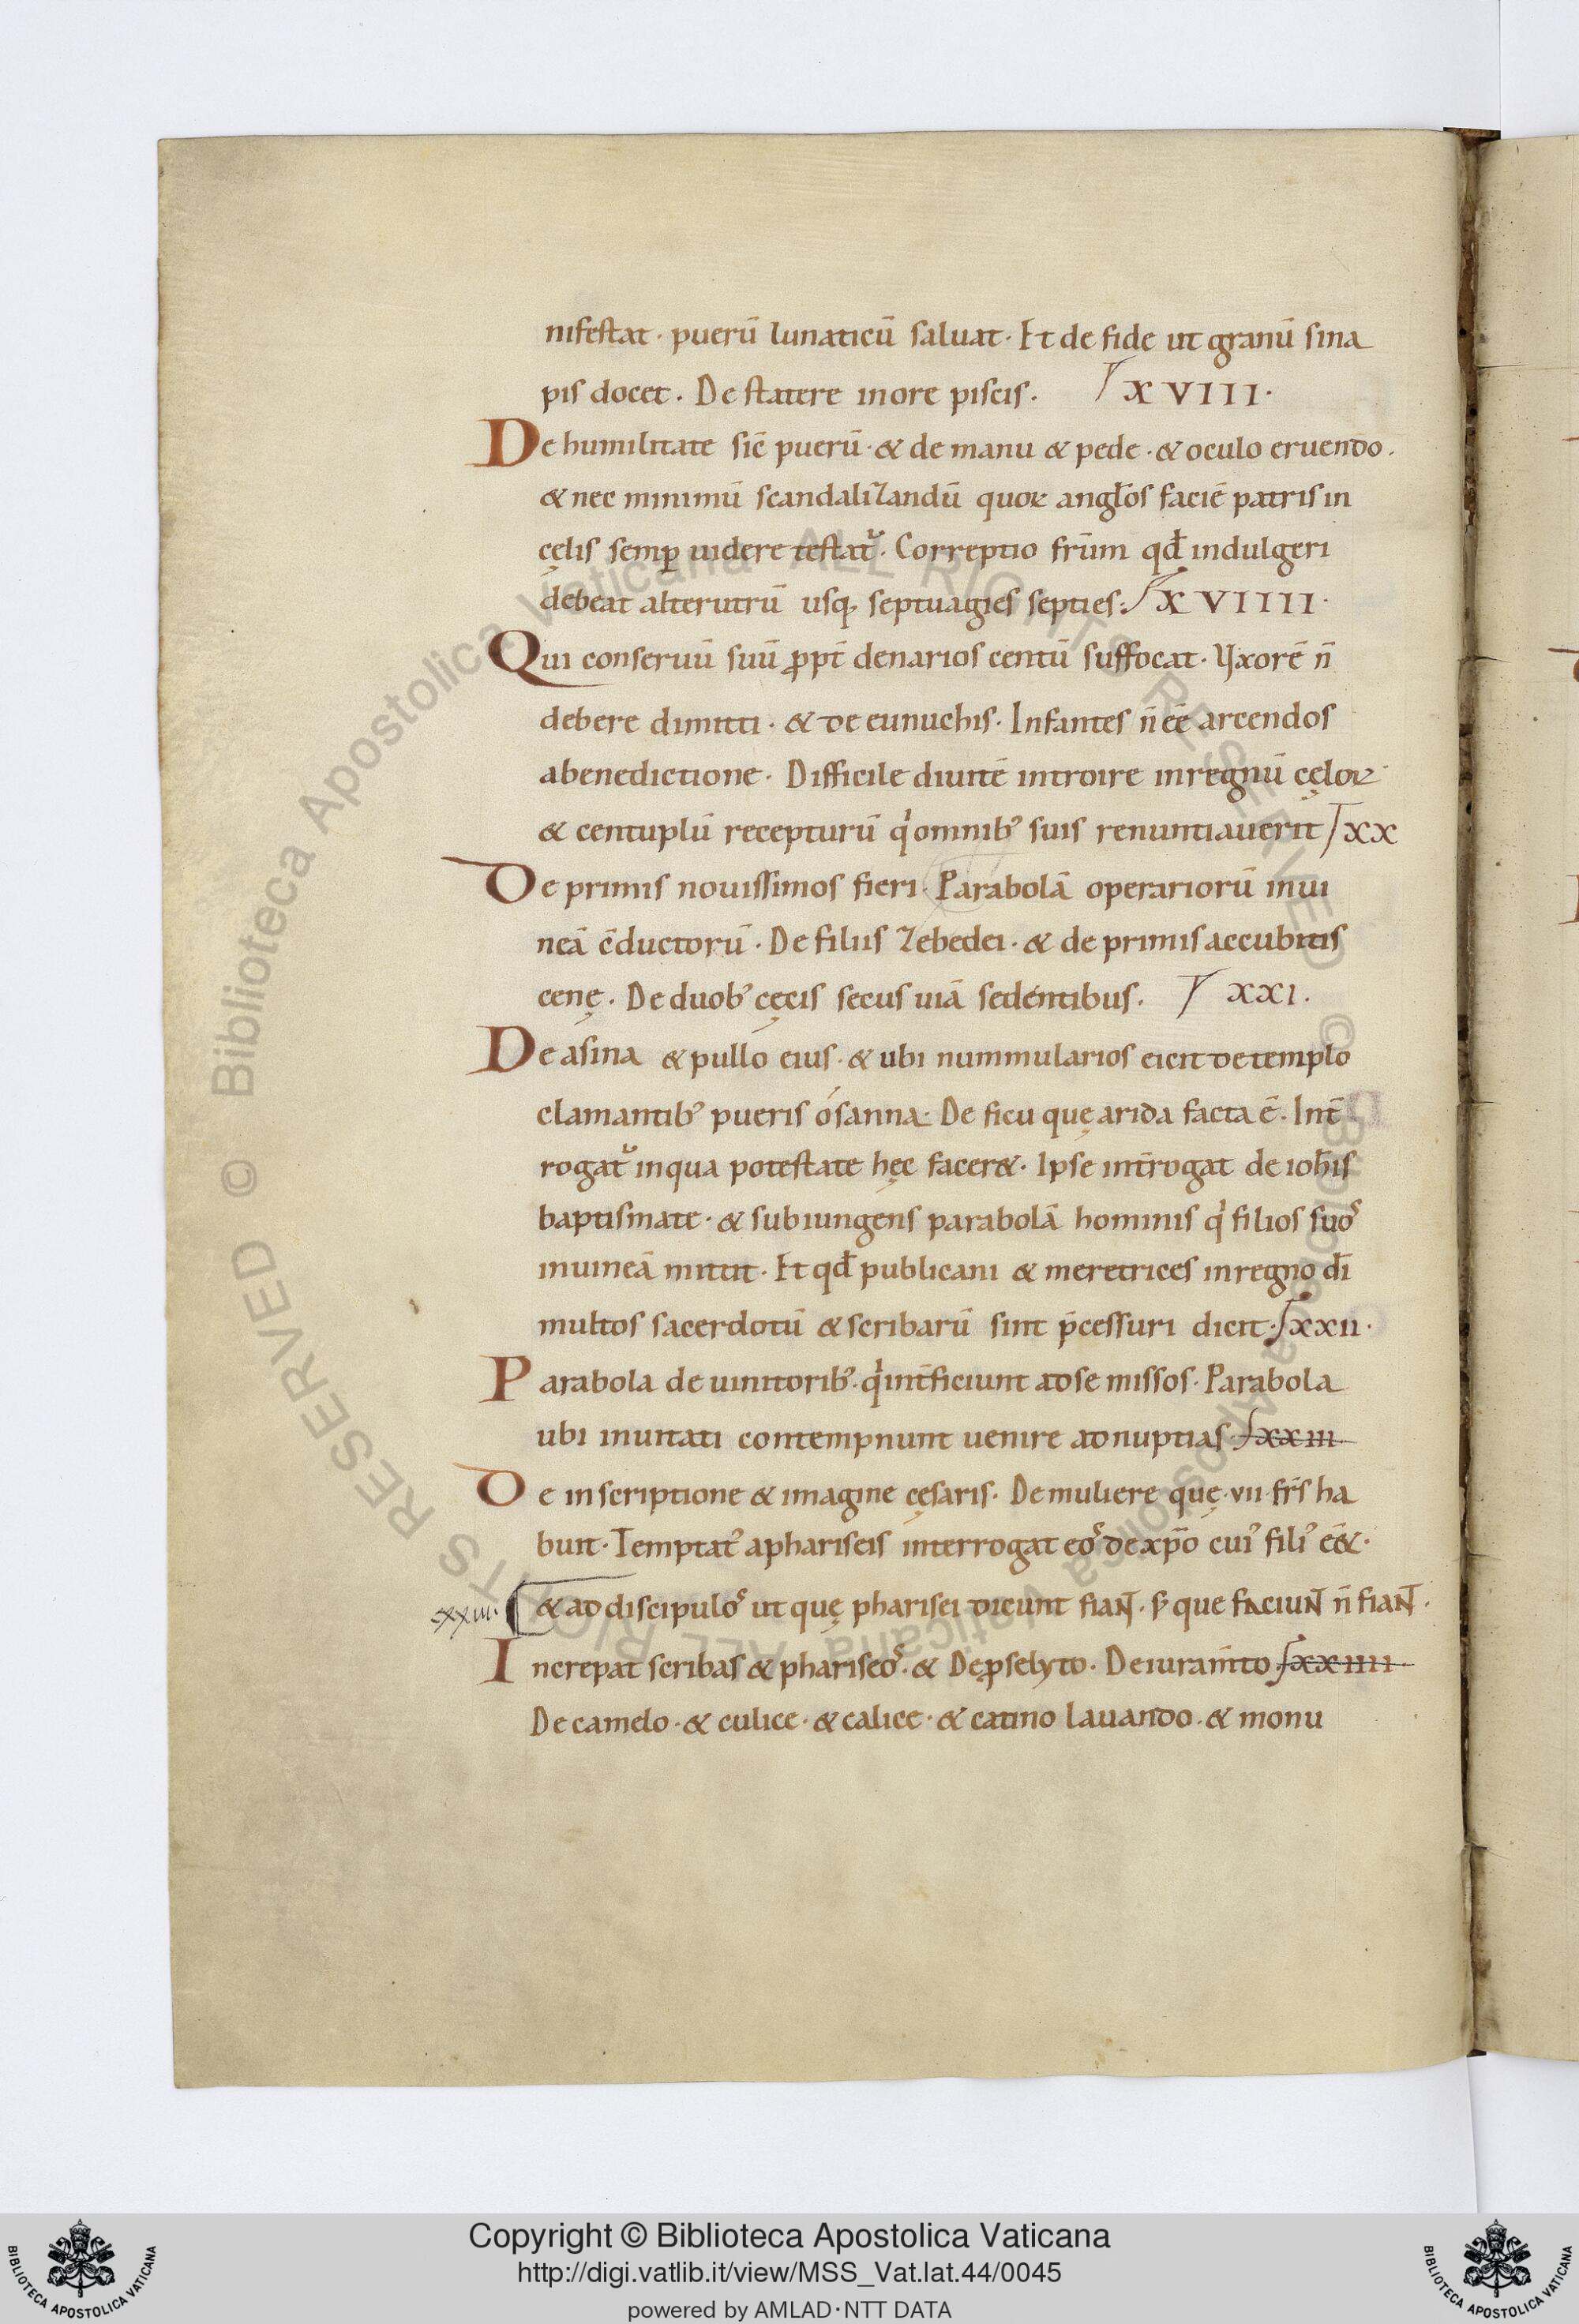 nifestat · puerū lunaticū saluat · Et de fide ut granū sina
pis docet . De statere in ore piscis . XVIII ·
De humilitate sic̄ puerū · & de manu & pede · & oculo eruendo .
& nec minimū scandalizandū quoꝝ angl̄os faciē patris in
cęlis semꝑ uidere testat᷑ · Correptio fr̄um qđ indulgeri
debeat alterutrū usq; septuagies septies : XVIIII ·
Qui conseruū suū ꝓpt̄ denarios centū suffocat · Uxorē n̄
debere dimitti · & de eunuchis · Infantes n̄ eē arcendos
a benedictione · Difficile diuitē introire in regnū cęloꝝ
& centuplū recepturū qͥ omnibꝰ suis renuntiauerit XX
De primis nouissimos fieri · Parabolā operariorū in ui
neā c̄ductorū · De filiis Zebedei · & de primis accubitis
cenę . De duobꝰ cęcis secus uiā sedentibus . XXI .
De asina & pullo eius · & ubi nummularios eicit de templo
clamantibꝰ pueris osanna · De ficu quę arida facta ē · Int̄
rogat᷑ in qua potestate hęc facer& · Ipse int̄rogat de ioh̄is
baptismate · & subiungens parabolā hominis qͥ filios suos
in uineā mittit · Et qđ publicani & meretrices in regno dī
multos sacerdotū & scribarū sint p̄cessuri dicit · XXII ·
Parabola de uinitoribꝰ · qͥ int̄ficiunt ad se missos · Parabola
ubi inuitati contempnunt uenire ad nuptias · XXIII ·
De inscriptione & imagine cęsaris · De muliere quę · VII · fr̄s ha
buit · Temptatꝰ a phariseis interrogat eos de xp̄o cuiꝰ filiꝰ ēē& ·
XXIII · & ad discipulos ut quę pharisei dicunt fiant · s; que faciunt n̄ fiant .
Increpat scribas & phariseos · & De ꝓselyto · De iuram̄to · XXIIII ·
De camelo · & culice · & calice · & catino lauando · & monu
Copyright © Biblioteca Apostolica Vaticana
http://digi.vatlib.it/view/MSS_Vat.lat.44/0045
powered by AMLAD·NTT DATA
BIBLIOTECA APOSTOLICA VATICANA
BIBLIOTECA APOSTOLICA VATICANA
© Biblioteca Apostolica Vaticana ALL RIGHTS RESERVED © Biblioteca Apostolica Vaticana ALL RIGHTS RESERVED